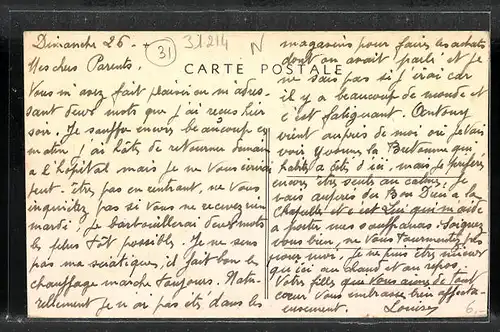 Dimanche 26.
31
31214
N
CARTE POSTALE
Mes chers Parents.
Vous m'avez fait plaisir en m'adres-
sant deux mots que j'ai reçus hier
soir. Je souffre encore beaucoup ce
matin! J'ai hâte de retourner demain
à l'hôpital mais je ne vous écrirai
peut-être pas en rentrant, ne vous
inquiétez pas si vous ne recevez rien
mardi. Je barbouillerai deux mots
le plus tôt possible. Je ne sens
pas ma sciatique, il fait bon le
chauffage marche toujours. Natu-
rellement je n'ai pas été dans les
magasins pour faire les achats
dont on avait parlé et je
ne sais pas si j'irai car
il y a beaucoup de monde et
c'est fatigant.
vient auprès de moi ou je vais
voir la Bretonne qui
habite à côté d'ici, mais je préfère
encore être seule au calme. Je
vais auprès du Bon Dieu à la
Chapelle et c'est Lui qui m'aide
à porter mes souffrances. Soignez
vous bien, ne vous tourmentez pas
pour moi. Je ne puis être mieux
qu'ici au chaud et au repos.
Votre fille que vous aimez de tout
cœur vous embrasse bien affectu-
eusement. Louise
6.-